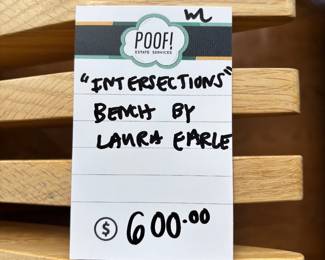 WL
POOF!
ESTATE SERVICES
"INTERSECTIONS"
BENCH BY
LAURA EARLE
$ 600.00